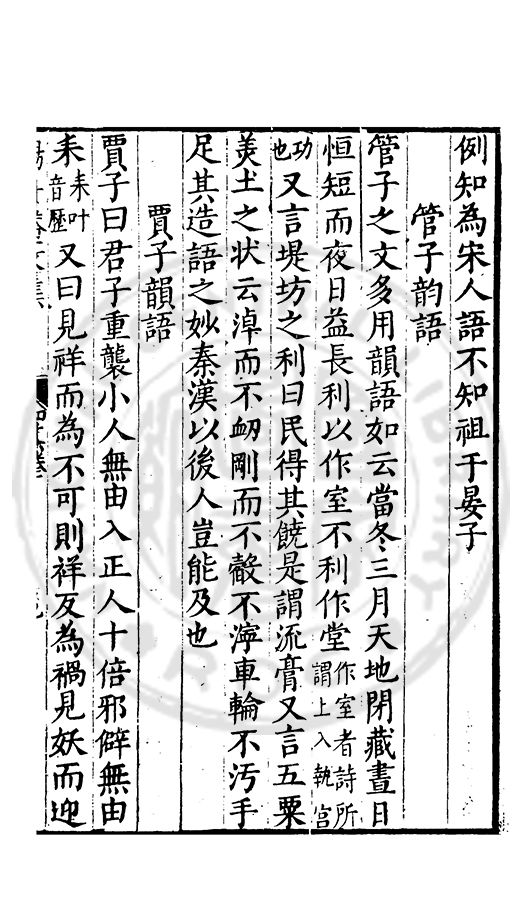 例知為宋人語不知祖于晏子
管子韵語
管子之文多用韻語如云當冬三月天地閉藏晝日
恒短而夜日益長利以作室不利作堂作室者詩所謂上入執宮
功也又言堤坊之利曰民得其饒是謂流膏又言五粟
美土之狀云淖而不肕剛而不觳不濘車輪不汚手
足其造語之妙秦漢以後人豈能及也
賈子韻語
賈子曰君子重襲小人無由入正人十倍邪僻無由
来来叶音歷又曰見祥而為不可則祥反為禍見妖而迎